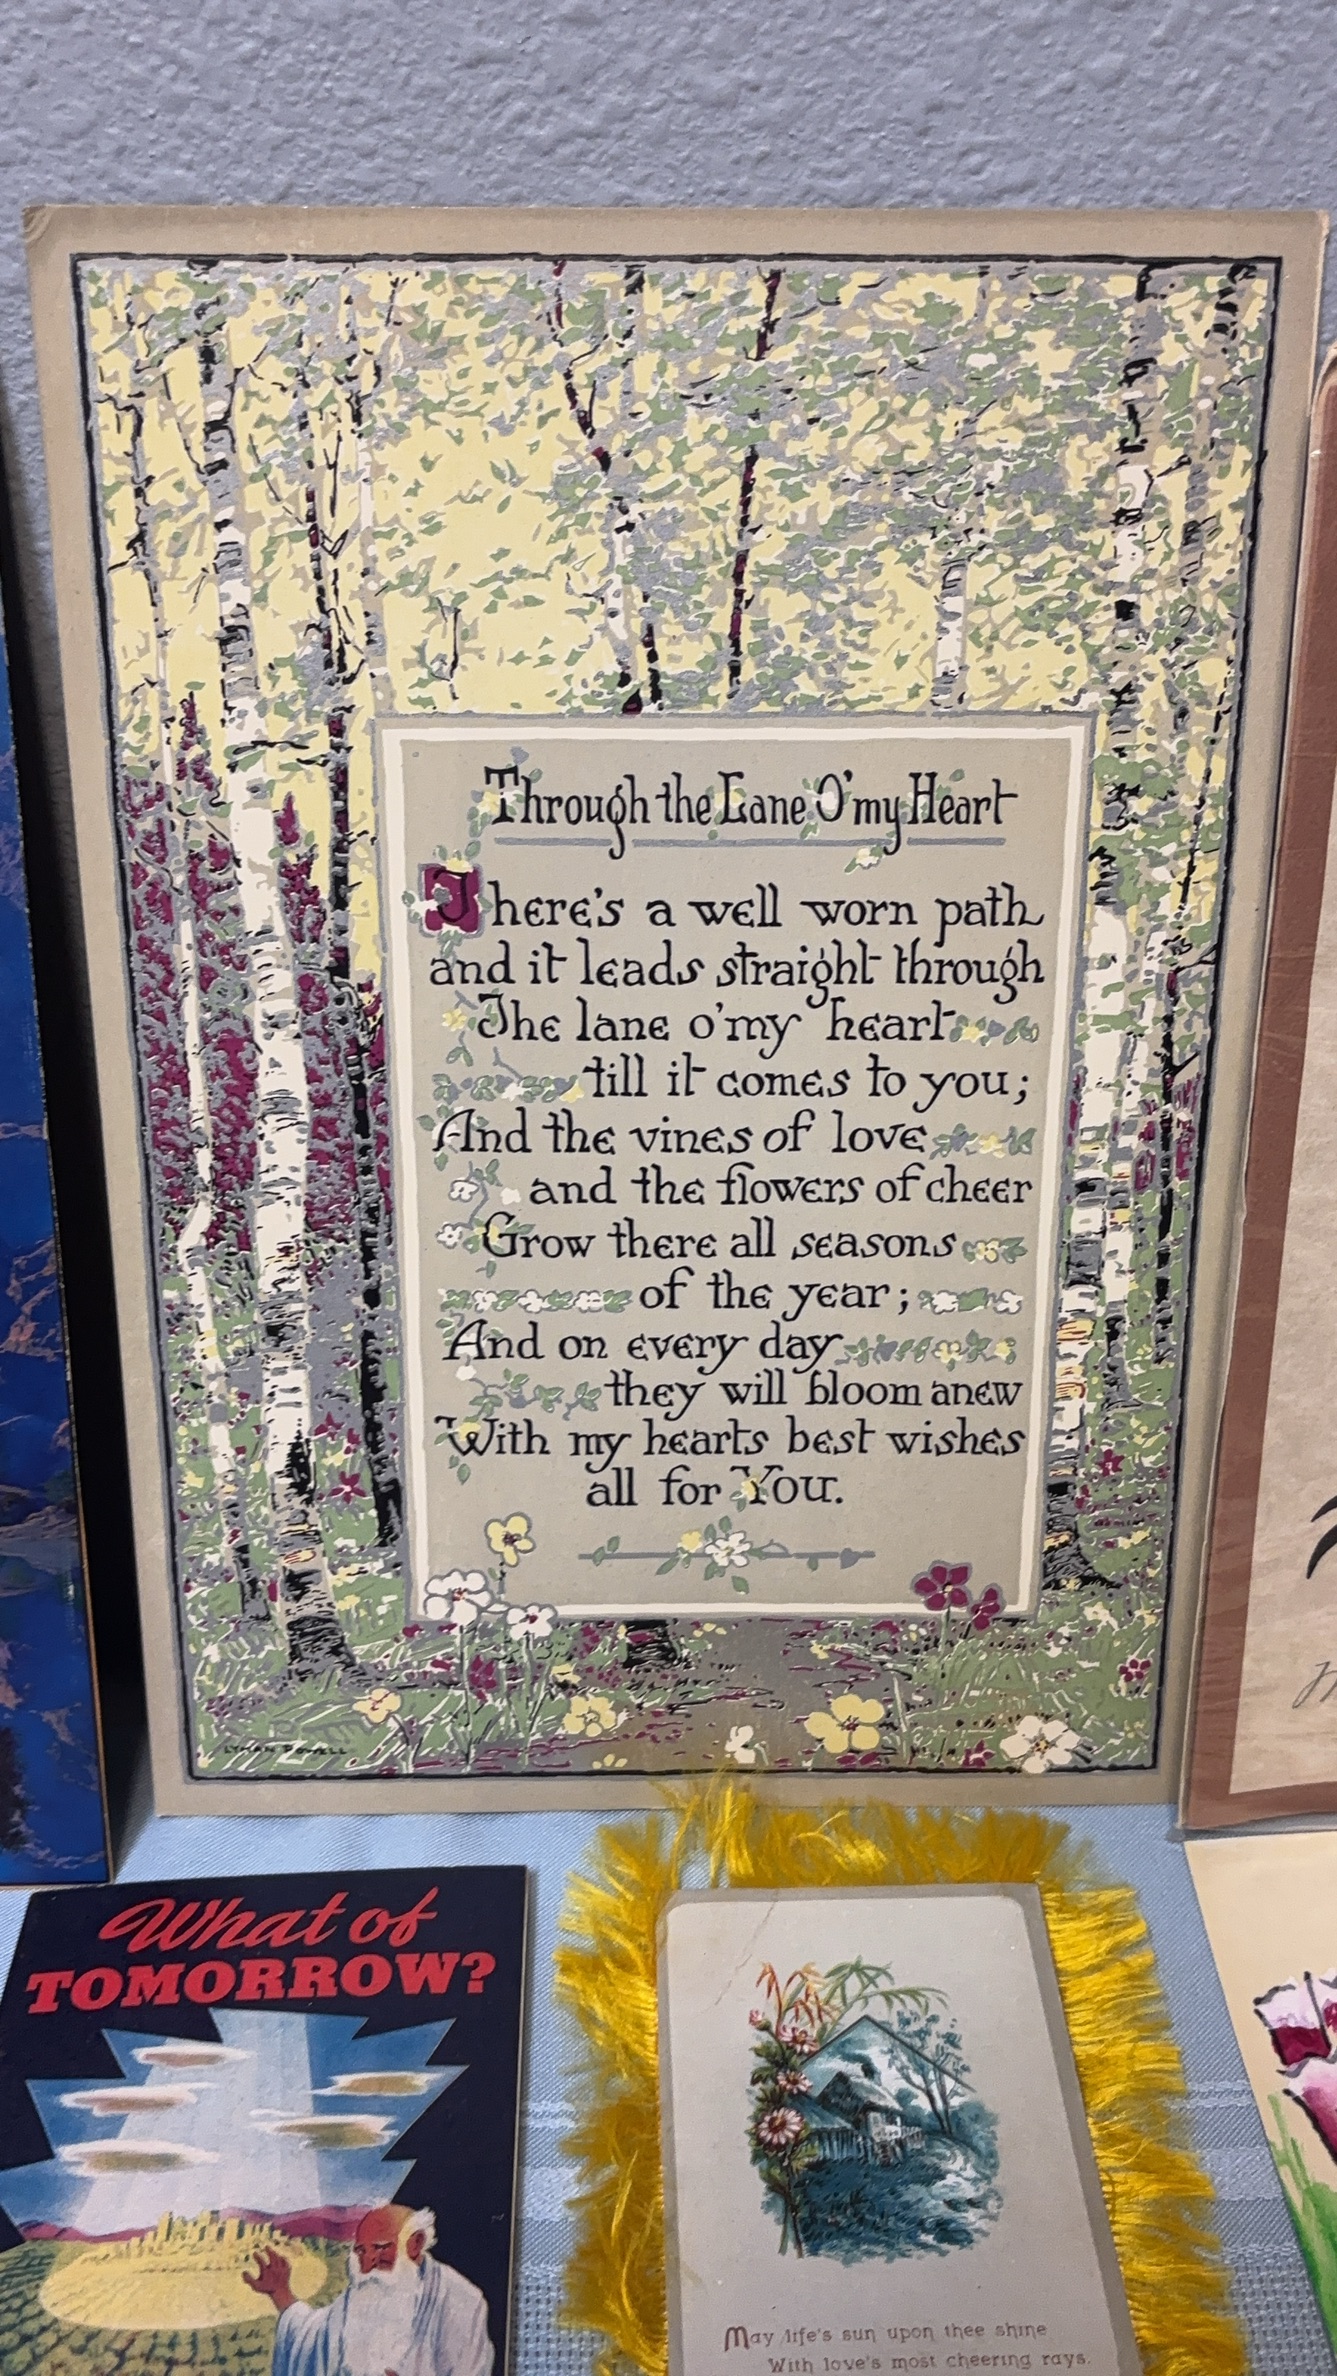 Through the Lane O' my Heart
There's a well worn path
and it leads straight through
The lane o' my heart
till it comes to you;
And the vines of love
and the flowers of cheer
Grow there all seasons
of the year;
And on every day
they will bloom anew
With my hearts best wishes
all for You.
LYMAN POWELL
What of
TOMORROW?
May life's sun upon thee shine
With love's most cheering rays.